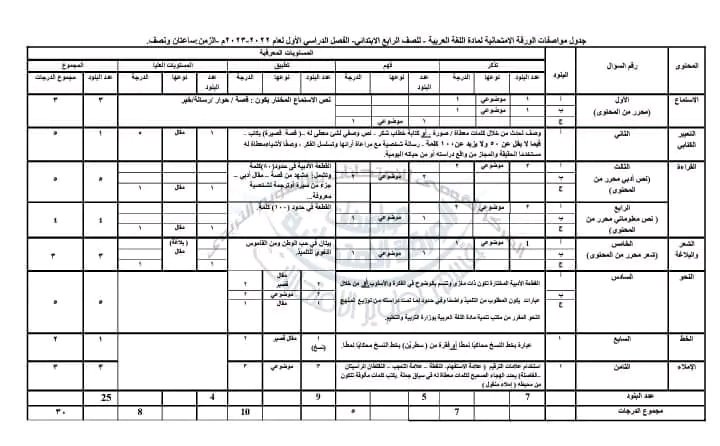 جدول مواصفات الورقة الامتحانية لمادة اللغة العربية - للصف الرابع الابتدائي- الفصل الدراسي الأول لعام ٢٠٢٢-٢٠٢٣م -الزمن:ساعتان ونصف.
المستويات المعرفية
المحتوى رقم السؤال البنود تذكر فهم تطبيق المستويات العليا المجموع
عدد البنود نوعها الدرجة عدد البنود نوعها الدرجة عدد البنود نوعها الدرجة عدد البنود نوعها الدرجة عدد البنود مجموع الدرجات
الاستماع الأول (محرر من المحتوى) أ ١ موضوعي ١ نص الاستماع المختار يكون : قصة / حوار /رسالة/خبر ٣ ٣
ب ١ موضوعي ١
ج ١ موضوعي ١
التعبير الكتابي الثاني أ وصف لحدث من خلال كلمات معطاة / صورة . أو كتابة خطاب شكر - نص وصفي لشئ معطى له - ( قصة قصيرة) يكتب - ١ مقال ٥ ١ ٥
فيما لا يقل عن ٥٠ ولا يزيد عن ١٠٠ كلمة - رسالة شخصية مع مراعاة أرائها وتسلسل الفكر ، أو وصف لأشياء معطاة له
مستخدما الحقيقة والمجاز من واقع دراسته أو من حياته اليومية.
القراءة الثالث (نص أدبي محرر من المحتوى) أ ٢ موضوعي ٢ القطعة الأدبية في حدود(٨٠)كلمة ٥ ٥
ب وتشمل: مشهد من قصة - مقال أدبي - ١ مقال ١
ج جزء من سيرة أو ترجمة لشخصية معروفة..
الرابع ( نص معلوماتي محرر من المحتوى) أ القطعة في حدود (١٠٠) كلمة. ١ مقال ١ ٤ ٤
ب ١ موضوعي ١
ج ٢ موضوعي ٢
الشعر والبلاغة الخامس (شعر محرر من المحتوى) أ ١ موضوعي ١ بيتان في حب الوطن ومن القاموس اللغوي للتلميذ ١ (بلاغة) مقال ١ ٣ ٣
ب
ج ١ موضوعي ١
النحو السادس أ القطعة الأدبية المختارة تكون ذات مغزى وتتسم بالوضوح في الفكرة والأسلوب أو من خلال ٢ مقال قصير ٢ ٥ ٥
ب عبارات يكون المطلوب من التلميذ واضحا وفي حدود لما تمت دراسته من توزيع لمنهج ٢ موضوعي ٢
ج النحو المقرر من مكتب تنمية مادة اللغة العربية بوزارة التربية والتعليم. ١ موضوعي ١
الخط السابع أ عبارة بخط النسخ محاكيا لمطا أو فقرة من ( سطرين) بخط النسخ محاكيا لمطا. ١ (نسخ) مقال قصير ٢ ١ ٢
الإملاء الثامن أ استخدام علامات الترقيم ( علامة الاستفهام- النقطة - علامة التعجب - النقطتان الرأسيتان ٣ موضوعي ٣ ٣ ٣
-الفاصلة) يحدد الهجاء الصحيح لكلمات معطاة له في سياق جملة يكتب كلمات مألوفة تتكون
من محيطه ( إملاء منقول )
عدد البنود 7 5 9 4 25
مجموع الدرجات 7 ٥ 10 8 ٣٠